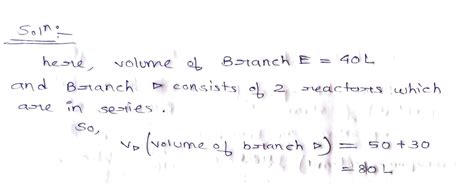 Soln:-
here, volume of Branch E = 40L
and Branch D consists of 2 reactors which
are in series.
So,
VD (volume of branch D) = 50 + 30
= 80L